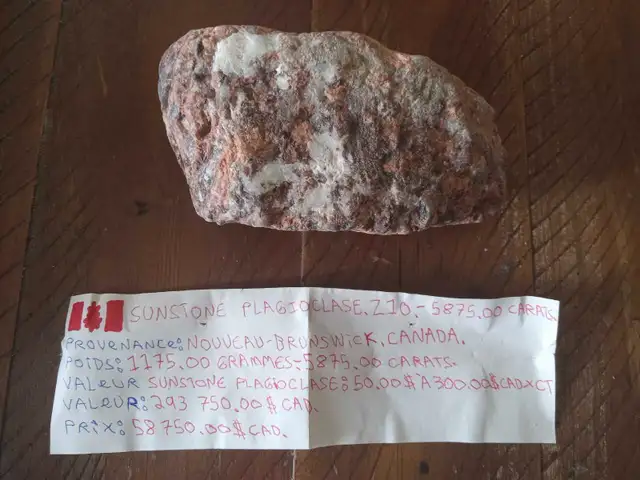 SUNSTONE PLAGIOCLASE.Z10.- 5875.00 CARATS.
PROVENANCE: NOUVEAU-BRUNSWICK, CANADA.
POIDS: 1175.00 GRAMMES- 5875.00 CARATS.
VALEUR SUNSTONE PLAGIOCLASE: 50.00$ A 300.00$ CAD X CT
VALEUR: 293 750.00$ CAD.
PRIX: 58 750.00$ CAD.